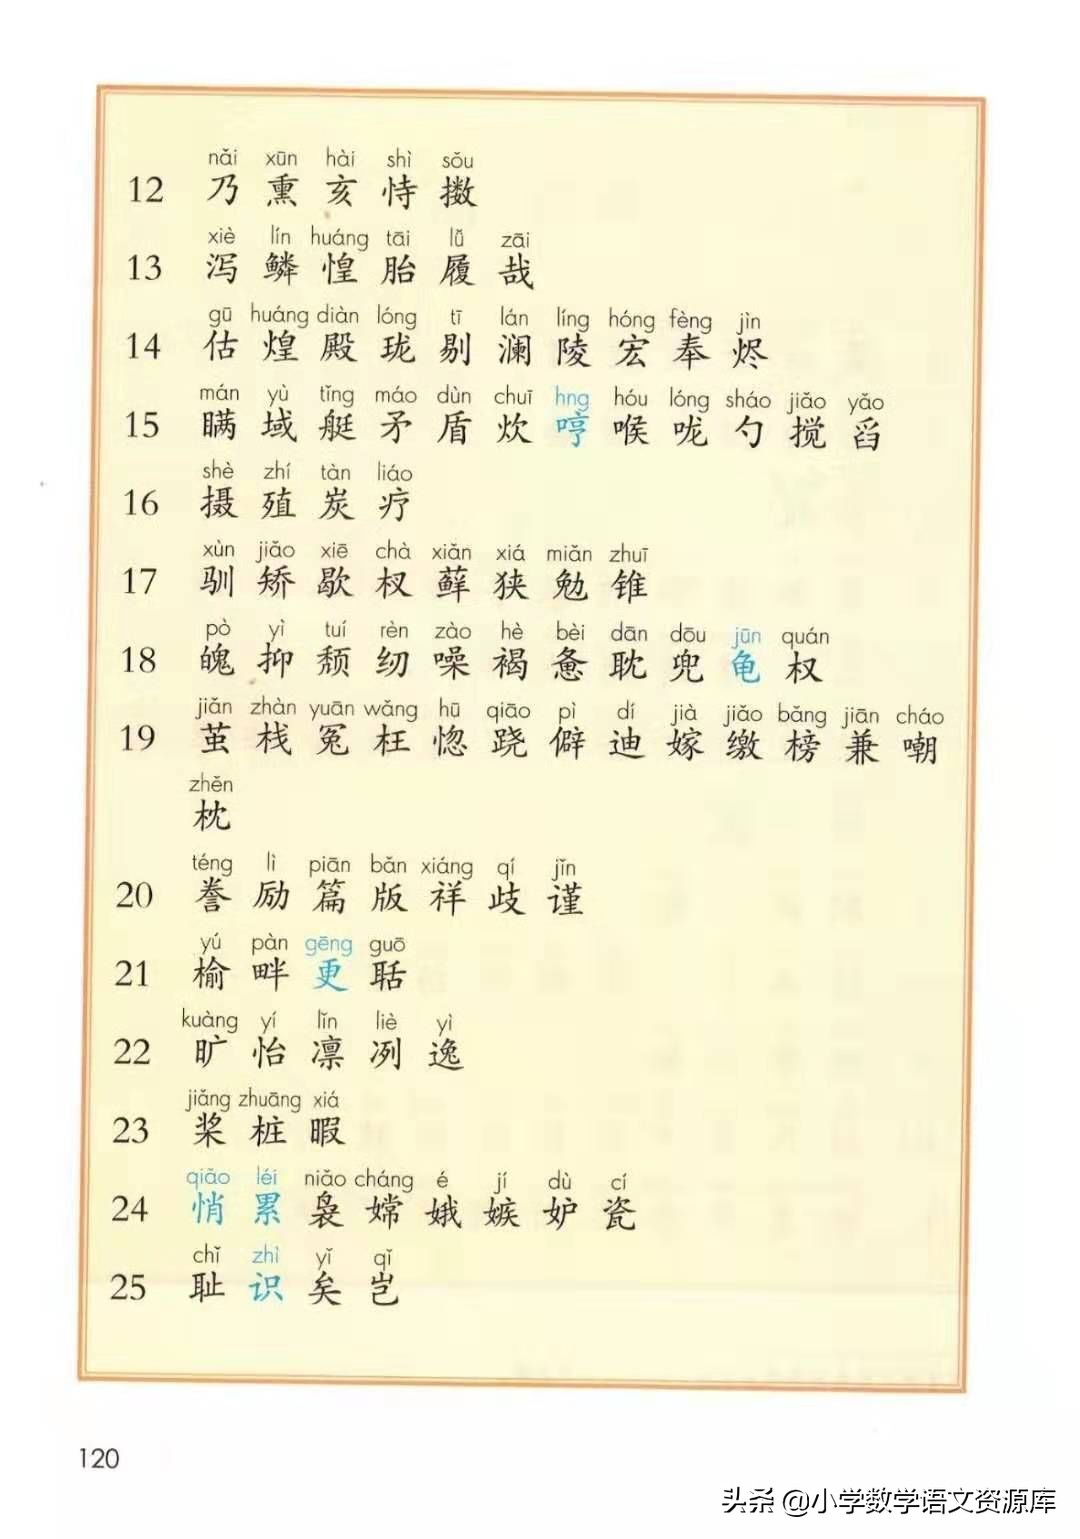 nǎi xūn hài shì sǒu
12 乃 熏 亥 恃 擞
xiè lín huáng tāi lǚ zāi
13 泻 鳞 惶 胎 履 哉
gū huáng diàn lóng tī lán líng hóng fèng jìn
14 估 煌 殿 珑 剔 澜 陵 宏 奉 烬
mán yù tǐng máo dùn chuī hng hóu lóng sháo jiǎo yǎo
15 瞒 域 艇 矛 盾 炊 哼 喉 咙 勺 搅 舀
shè zhí tàn liáo
16 摄 殖 炭 疗
xùn jiǎo xiē chà xiǎn xiá miǎn zhuī
17 驯 矫 歇 杈 藓 狭 勉 锥
pò yì tuí rèn zào hè bèi dān dōu jūn quán
18 魄 抑 颓 纫 噪 褐 惫 耽 兜 龟 权
jiǎn zhàn yuān wǎng hū qiāo pì dí jià jiǎo bǎng jiān cháo
19 茧 栈 冤 枉 惚 跷 僻 迪 嫁 缴 榜 兼 嘲
zhěn
枕
téng lì piān bǎn xiáng qí jǐn
20 誊 励 篇 版 祥 歧 谨
yú pàn gēng guō
21 榆 畔 更 聒
kuàng yí lǐn liè yì
22 旷 怡 凛 冽 逸
jiǎng zhuāng xiá
23 桨 桩 暇
qiǎo léi niǎo cháng é jí dù cí
24 悄 累 袅 嫦 娥 嫉 妒 瓷
chǐ zhì yǐ qǐ
25 耻 识 矣 岂
120
头条 @小学数学语文资源库